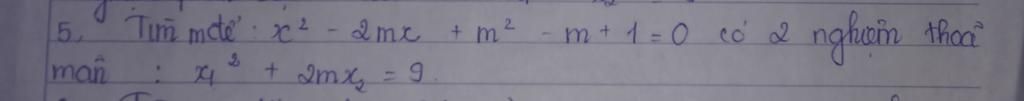 5, Tìm m để : x² - 2mx + m² - m + 1 = 0 có 2 nghiệm thoả
mãn : x₁² + 2mx₂ = 9.